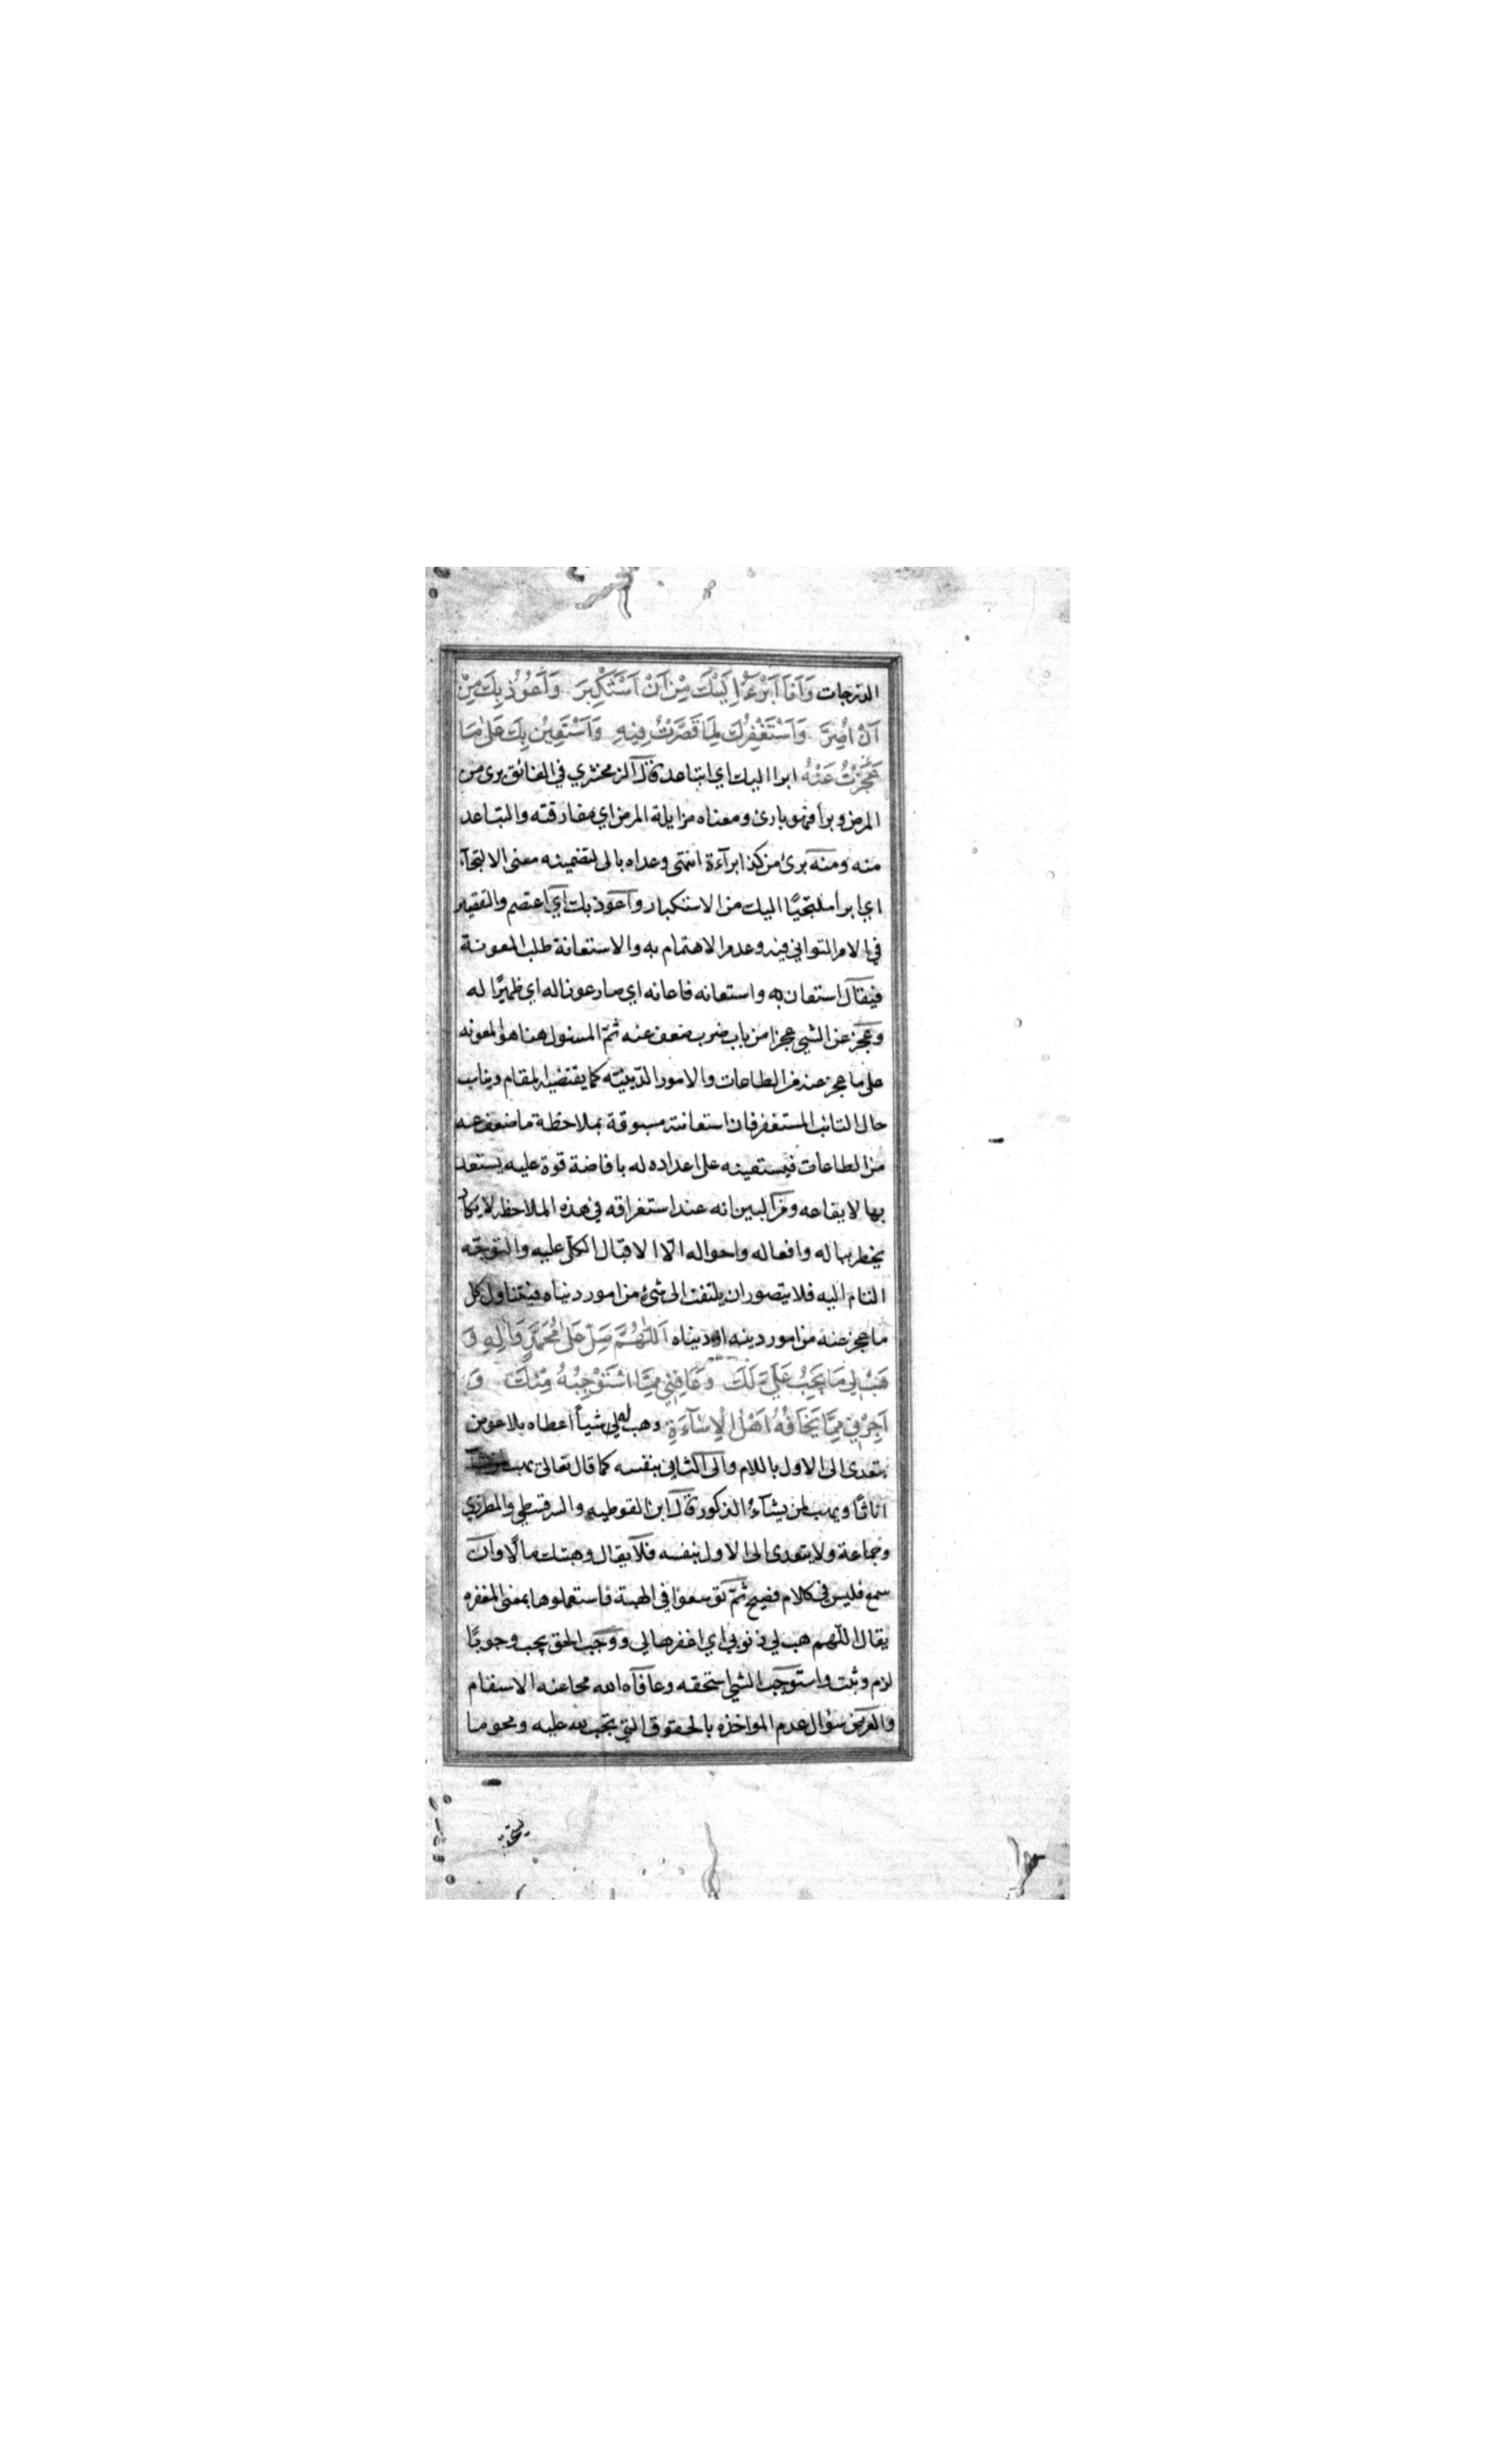 الدرجات وَاَنَا اَبْرَءُ اِلَيْكَ مِنْ اَنْ اَسْتَكْبِرَ وَاَعُوْذُ بِكَ مِنْ
اَنْ اُصِرَّ وَاَسْتَغْفِرُكَ لِمَا قَصَّرْتُ فِيهِ وَاَسْتَعِيْنُ بِكَ عَلٰى مَا
عَجَزْتُ عَنْهُ ابرا اليك اي اتباعد قال الزمخشري في الفائق برئ من
المرض وبرأ فهو بارئ ومعناه مزايلة المرض اي مفارقته والتباعد
منه ومنه برئ من كذا براءة انتهى وعداه بالى لتضمينه معنى الالتجآء
اي ابرأ ملتجيًا اليك من الاستكبار واعوذ بك اي اعتصم والتقصير
في الامر التواني فيه وعدم الاهتمام به والاستعانة طلب المعونة
فيقال استعان به واستعانه فاعانه اي صار عونا له اي ظهيرًا له
وعجز عن الشي عجزا من باب ضرب ضعف عنه ثمّ المسئول هنا هو المعونه
على ما عجز عنه من الطاعات والامور الدّينيّه كما يقتضيه المقام ويناسب
حال التائب المستغفر فان استعانته مسبوقة بملاحظة ما ضعف عنه
من الطاعات فيستعينه على اعداده له بافاضة قوة عليه يستعد
بها لايقاعه ومن البين انه عند استغراقه في هذه الملاحظه لا يكاد
يخطر بباله وافعاله واحواله الّا الاقبال الكلّي عليه والتوجّه
التام اليه فلا يتصور ان يلتفت الى شئ من امور دنياه فيتناول كل
ما عجز عنه من امور دينه او دنياه اَللّٰهُمَّ صَلِّ عَلٰى مُحَمَّدٍ وَاٰلِهِ وَ
هَبْ لِي مَا يَجِبُ عَلَيَّ لَكَ وَعَافِنِي مِمَّا اسْتَوْجِبُهُ مِنْكَ وَ
اَجِرْنِي مِمَّا يَخَافُهُ اَهْلُ الْاِسَآءَةِ وهب له شيأ اعطاه بلا عوض
يتعدى الى الاول باللام والى الثاني بنفسه كما قال تعالى يهب لمن يشآء
اناثًا ويهب لمن يشآءُ الذكور قال ابن القوطيه والسرقسطي والمطرزي
وجماعة ولا يتعدى الى الاول بنفسه فلا يقال وهبتك مالًا وان
سمع فليس في كلام فصيح ثمّ توسعوا في الهبة فاستعملوها بمعنى المغفره
يقال اللّهم هب لي ذنوبي اي اغفرها لي ووجب الحق يجب وجوبًا
لزم وثبت واستوجب الشي استحقه وعافاه الله محا عنه الاسقام
والغرض سؤال عدم المواخذه بالحقوق التي تجب لله عليه ومحو ما